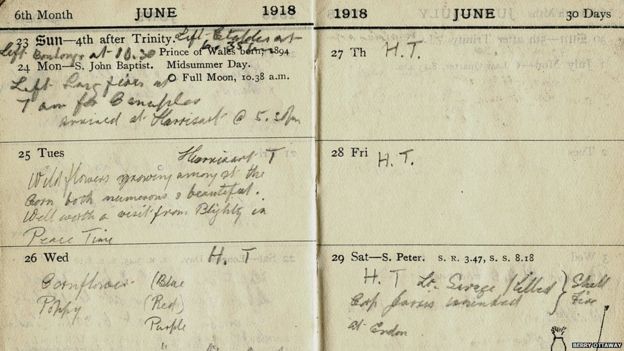 6th Month JUNE 1918
23 Sun—4th after Trinity. Left Etaples at
Left at 10.30 Prince of Wales born, 1894
24 Mon—S. John Baptist. Midsummer Day.
Full Moon, 10.38 a.m.
Left at
7 am for
arrived at @ 5.30pm
25 Tues T
Wild flowers growing amongst the
Corn both numerous & beautiful.
Well worth a visit from Blighty in
Peace Time
26 Wed H. T
Cornflower (Blue
Poppy (Red)
Purple
1918 JUNE 30 Days
27 Th H. T.
28 Fri H. T.
29 Sat—S. Peter. S. R. 3.47, S. S. 8.18
H. T Lt. Savage killed } Shell
Corp Jarvis wounded Fire
at
BERRY OTTAWAY